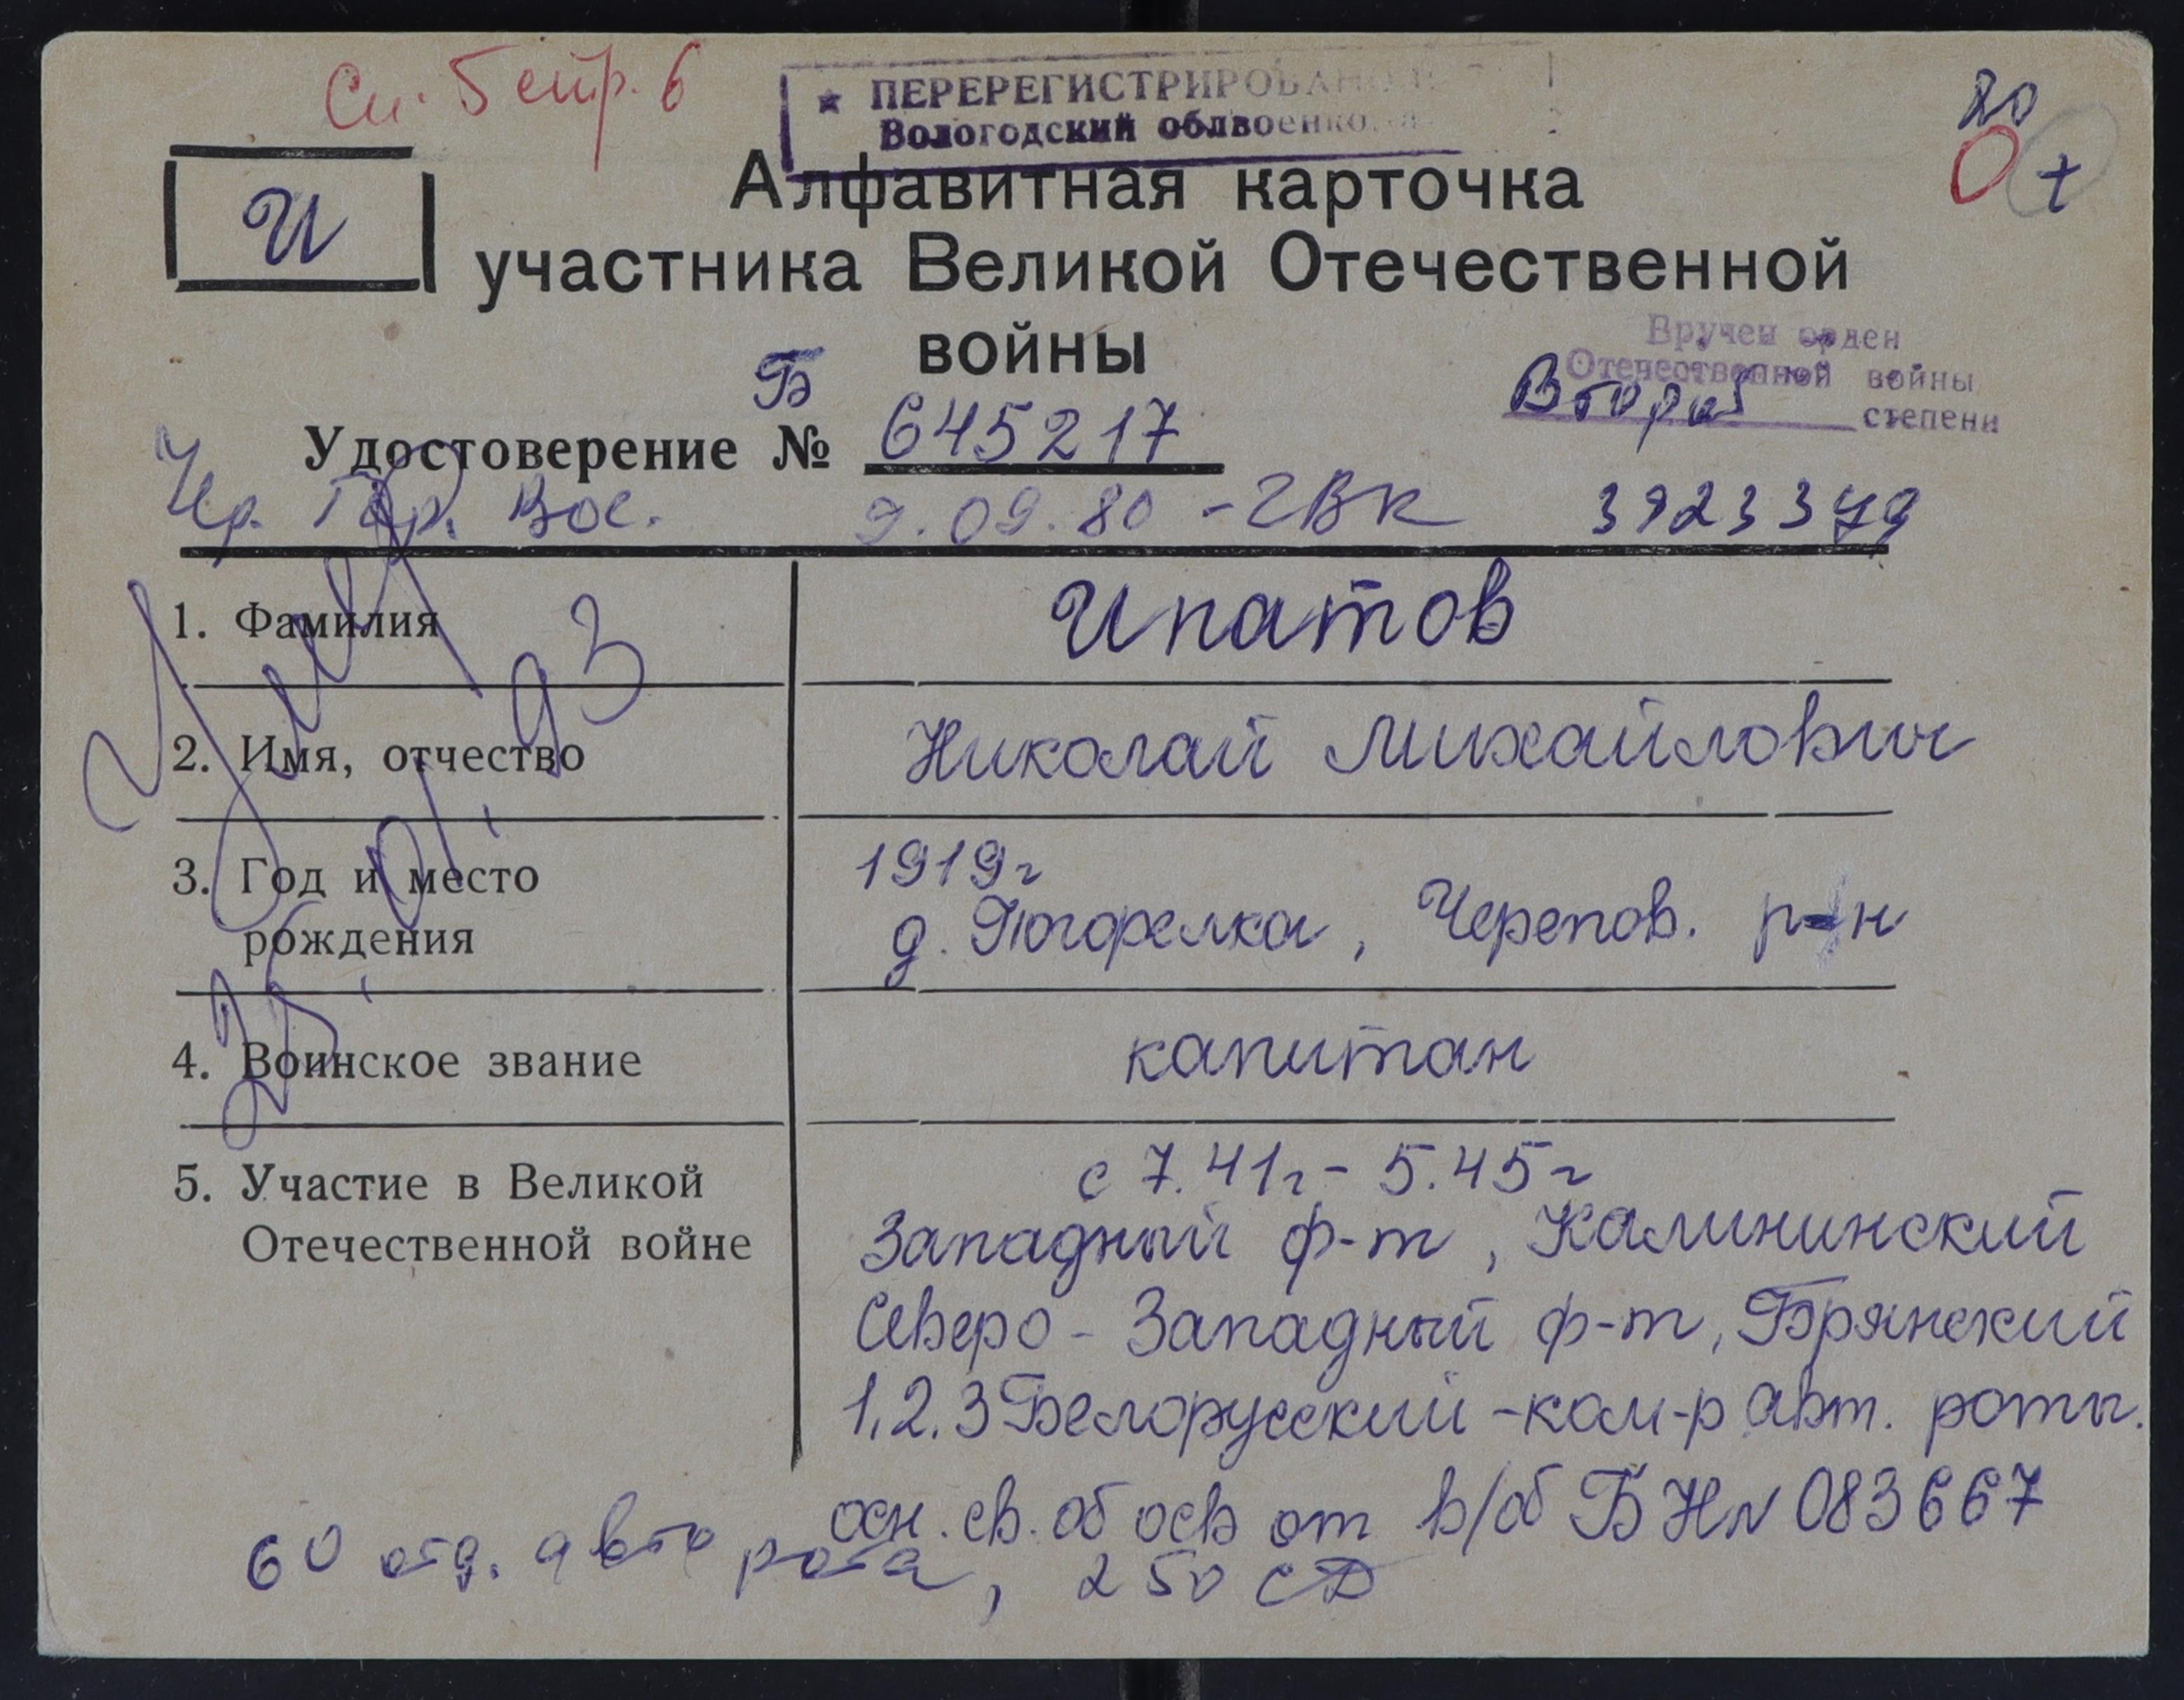 Сп. 5 стр. 6
ПЕРЕРЕГИСТРИРОВАНО
Вологодский облвоенко
20
О +
И
Алфавитная карточка
участника Великой Отечественной
войны
Вручен орден
Отечественной войны
Второй степени
Б
Удостоверение № 645217
Чер. Гор. Вое. 9.09.80 - ГВК 3923379
1. Фамилия Ипатов
2. Имя, отчество Николай Михайлович
3. Год и место 1919г
рождения д. Погорелка, Черепов. р-н
4. Воинское звание капитан
5. Участие в Великой с 7.41г - 5.45г
Отечественной войне Западный ф-т, Калининский
Северо-Западный ф-т, Брянский
1,2,3 Белорусский -ком-р авт. роты.
осн. св. об осв от в/об БН№ 083667
60 отд. авто рота, 250 СД
Умер
25.01.93